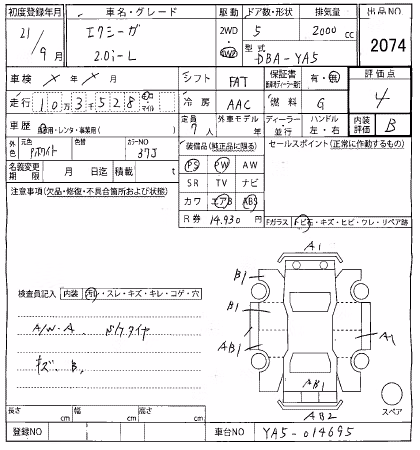 初度登録年月 車名・グレード 駆動 ドア数・形状 排気量 出品NO
21/9月 エクシーガ 2.0i-L 2WD 4WD 5 2000cc 2074
型式 DBA-YA5
車検 × 年 × 月 シフト FAT 保証書 有・無 評価点
走行 10万3千528 km マイル 冷房 AAC 燃料 G 4
車歴 自家用・レンタ・事業用( ) 定員 7人 外車モデル 年 ディーラー・並行 ハンドル 左・右 内装評価 B
外色 元色 Pホワイト 色替 カラーNO 37J 装備品(純正品に限る) セールスポイント(正常に作動するもの)
名義変更期限 月 日迄 積載 t PS PW AW
注意事項(欠品・修復・不具合箇所および状態) SR TV ナビ
カワ エアB ABS
R券 14,930円 Fガラス トビ石・キズ・ヒビ・ワレ・リペア跡
A1
B1
検査員記入 内装 汚れ・スレ・キズ・キレ・コゲ・穴
B1
A/W-A
AB1 A1
キズ、B,
AB1
AB2
スペア
長さ cm 幅 cm 高さ cm
登録NO 車台NO YA5-014695